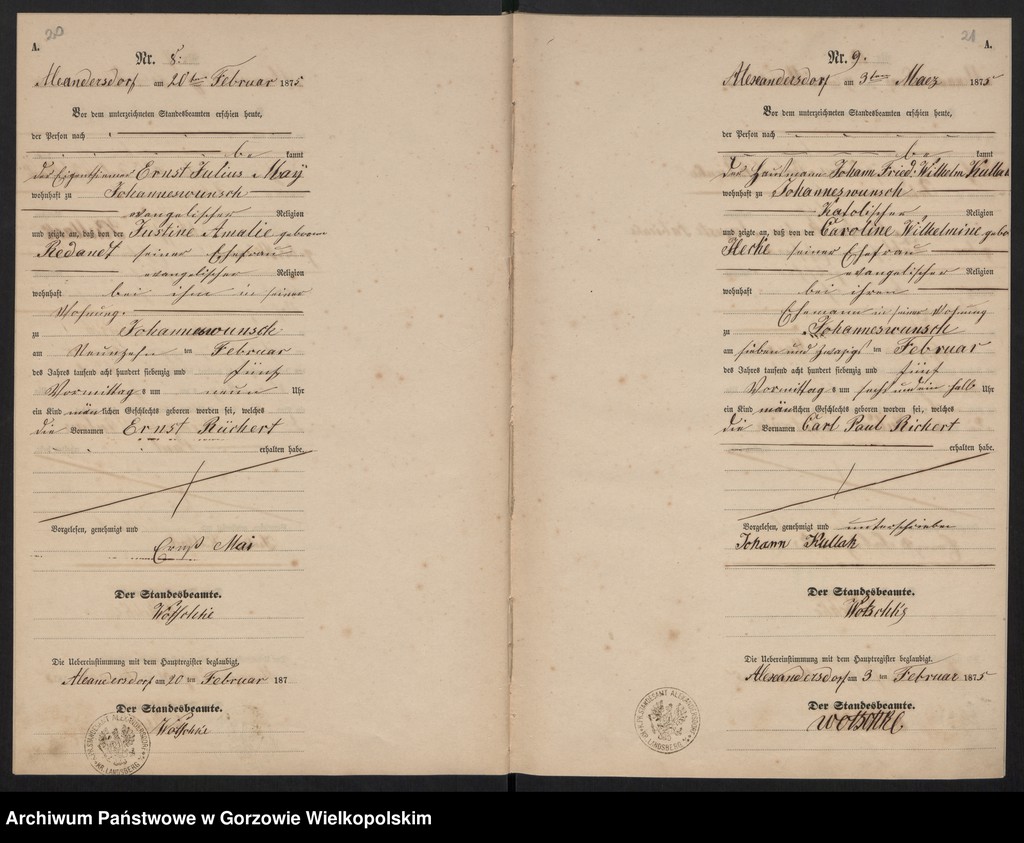 20
A.
Nr. 8.
Alexandersdorf am 20ten Februar 1875
Vor dem unterzeichneten Standesbeamten erschien heute,
der Person nach
be kannt
der Eigenthümer Ernst Julius Maÿ
wohnhaft zu Johanneswunsch
evangelischer Religion
und zeigte an, daß von der Justine Amalie geborne
seiner Ehefrau
evangelischer Religion
wohnhaft bei ihm in seiner
Wohnung.
zu Johanneswunsch
am Neunzehn ten Februar
des Jahres tausend acht hundert siebenzig und fünf
Vormittag s um neun Uhr
ein Kind mänlichen Geschlechts geboren worden sei, welches
die Vornamen Ernst Richert
erhalten habe.
Vorgelesen, genehmigt und
Ernst Mai
Der Standesbeamte.
Wotschke
Die Uebereinstimmung mit dem Hauptregister beglaubigt,
Alexandersdorf am 20 ten Februar 187
Der Standesbeamte.
Wotschke
21
A.
Nr. 9.
Alexandersdorf am 3ten Maez 1875
Vor dem unterzeichneten Standesbeamten erschien heute,
der Person nach
be kannt
Der Hausmann Johann Fried. Wilhelm Kullak
wohnhaft zu Johanneswunsch
Katolischer Religion
und zeigte an, daß von der Caroline Wilhelmine gebo
Hecke seiner Ehefrau
evangelischer Religion
wohnhaft bei ihren
Ehemann in seiner Wohnung
zu Johanneswunsch
am sieben und zwazigs ten Februar
des Jahres tausend acht hundert siebenzig und fünf
Vormittag s um sechs und ein halb Uhr
ein Kind mänlichen Geschlechts geboren worden sei, welches
die Vornamen Carl Paul Richert
erhalten habe.
Vorgelesen, genehmigt und unterschrieben
Johann Kullak
Der Standesbeamte.
Wotschke
Die Uebereinstimmung mit dem Hauptregister beglaubigt,
Alexandersdorf am 3 ten Februar 1875
Der Standesbeamte.
Wotschke
Archiwum Państwowe w Gorzowie Wielkopolskim